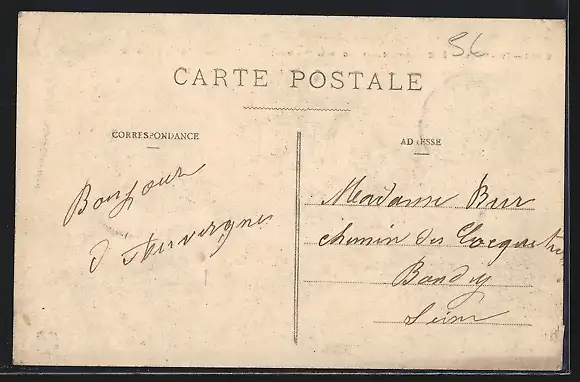 56
CARTE POSTALE
CORRESPONDANCE
ADRESSE
Bonjour
d'Auvergne
Madame Bur
chemin des
Bondy
Seine